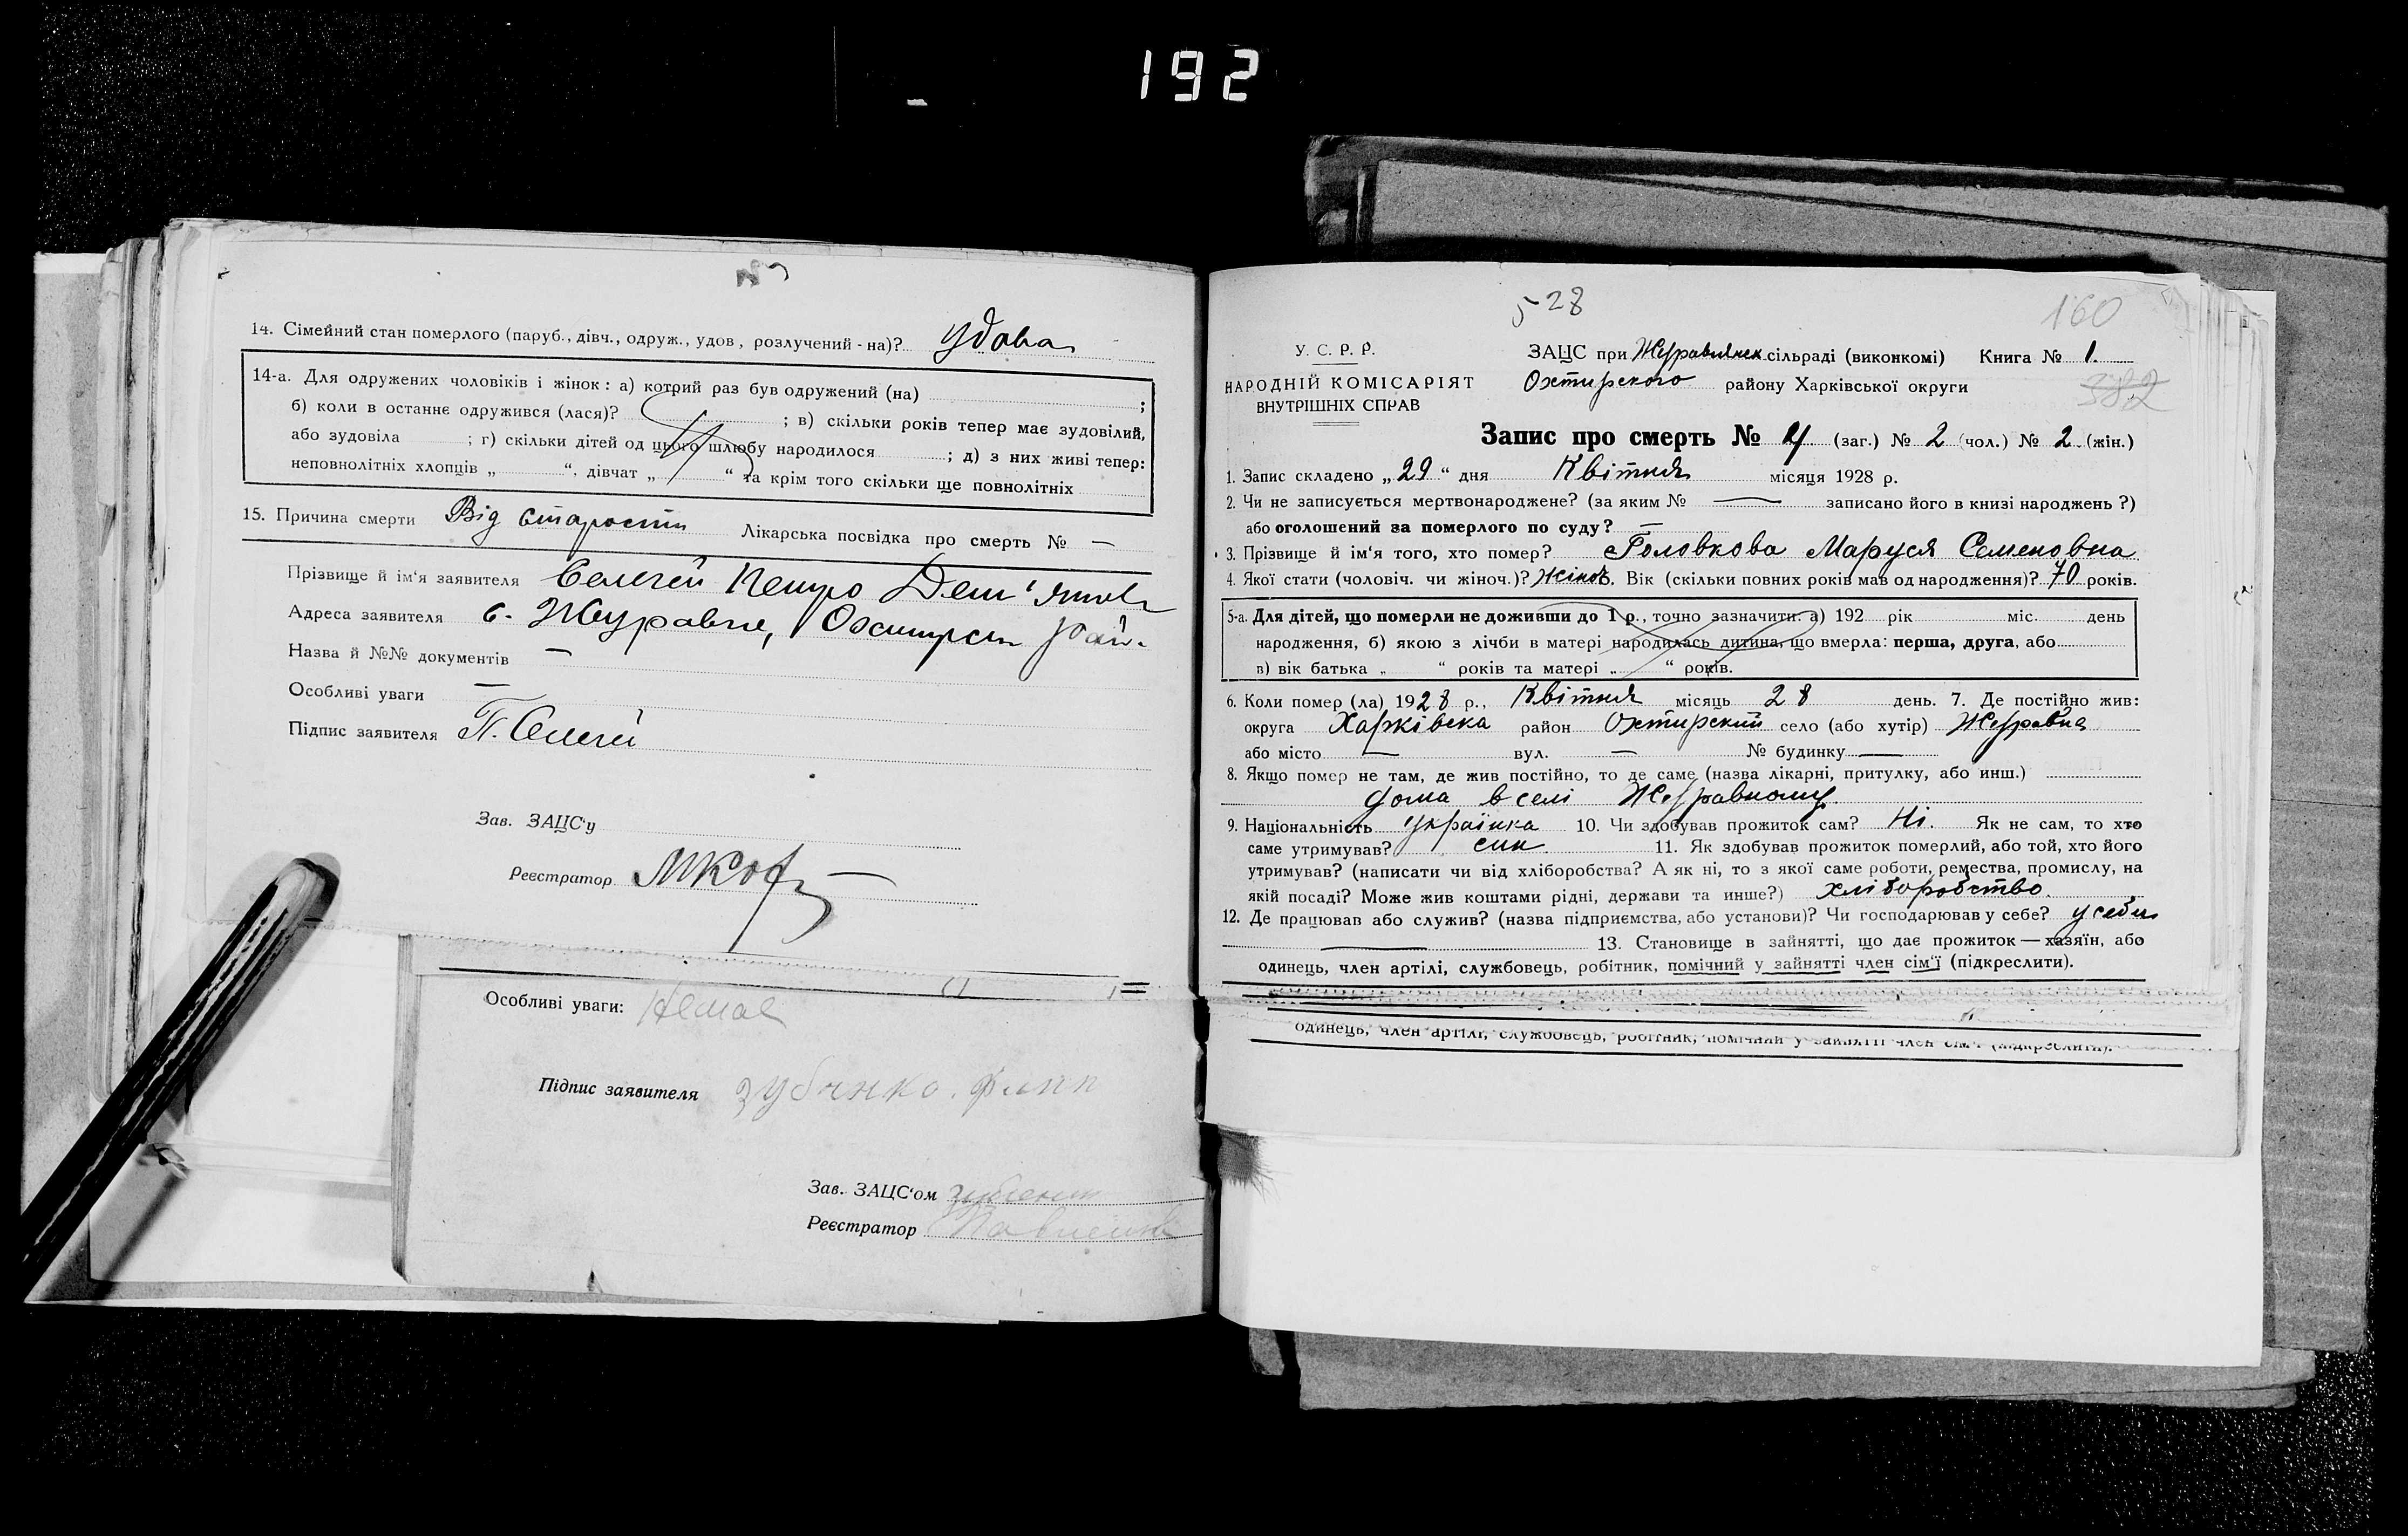 192
14. Сімейний стан померлого (паруб., дівч., одруж., удов, розлучений - на)? Удова
14-а. Для одружених чоловіків і жінок: а) котрий раз був одружений (на) ;
б) коли в останнє одружився (лася)? ; в) скільки років тепер має зудовілий,
або зудовіла ; г) скільки дітей од цього шлюбу народилося ; д) з них живі тепер:
неповнолітніх хлопців „ “, дівчат „ “ та крім того скільки ще повнолітніх
15. Причина смерти Від старости Лікарська посвідка про смерть № —
Прізвище й ім'я заявителя Селегей Петро
Адреса заявителя с. Журавне, Охтирськ рай.
Назва й №№ документів —
Особливі уваги —
Підпис заявителя П. Селегей
Зав. ЗАЦС'у
Реєстратор
Особливі уваги: Немає
Підпис заявителя
Зав. ЗАЦС'ом
Реєстратор
528
160
У. С. Р. Р.
НАРОДНІЙ КОМІСАРІЯТ
ВНУТРІШНІХ СПРАВ
ЗАЦС при Журавлянск сільраді (виконкомі) Книга № 1.
Охтирского району Харківської округи
382
Запис про смерть № 4 (заг.) № 2 (чол.) № 2 (жін.)
1. Запис складено „ 29 “ дня Квітня місяця 1928 р.
2. Чи не записується мертвонароджене? (за яким № — записано його в книзі народжень ?)
або оголошений за померлого по суду? —
3. Прізвище й ім'я того, хто помер? Головкова Маруся Семеновна
4. Якої стати (чоловіч. чи жіноч.)? жіноч. Вік (скільки повних років мав од народження)? 70 років.
5-а. Для дітей, що померли не доживши до 1 р., точно зазначити: а) 192 рік міс. день
народження, б) якою з лічби в матері народилась дитина, що вмерла: перша, друга, або
в) вік батька „ “ років та матері „ “ років.
6. Коли помер (ла) 1928 р., Квітня місяць 28 день. 7. Де постійно жив:
округа Харківска район Охтирский село (або хутір) Журавна
або місто — вул. — № будинку —
8. Якщо помер не там, де жив постійно, то де саме (назва лікарні, притулку, або инш.)
дома в селі Журавному.
9. Національність українка 10. Чи здобував прожиток сам? Ні. Як не сам, то хто
саме утримував? син 11. Як здобував прожиток померлий, або той, хто його
утримував? (написати чи від хліборобства? А як ні, то з якої саме роботи, ремества, промислу, на
якій посаді? Може жив коштами рідні, держави та инше?) хліборобство.
12. Де працював або служив? (назва підприємства, або установи)? Чи господарював у себе? у себи
— 13. Становище в зайнятті, що дає прожиток — хазяїн, або
одинець, член артілі, службовець, робітник, помічний у зайнятті член сім'ї (підкреслити).
одинець, член артілі, службовець, робітник, помічний у зайнятті член сім'ї (підкреслити).